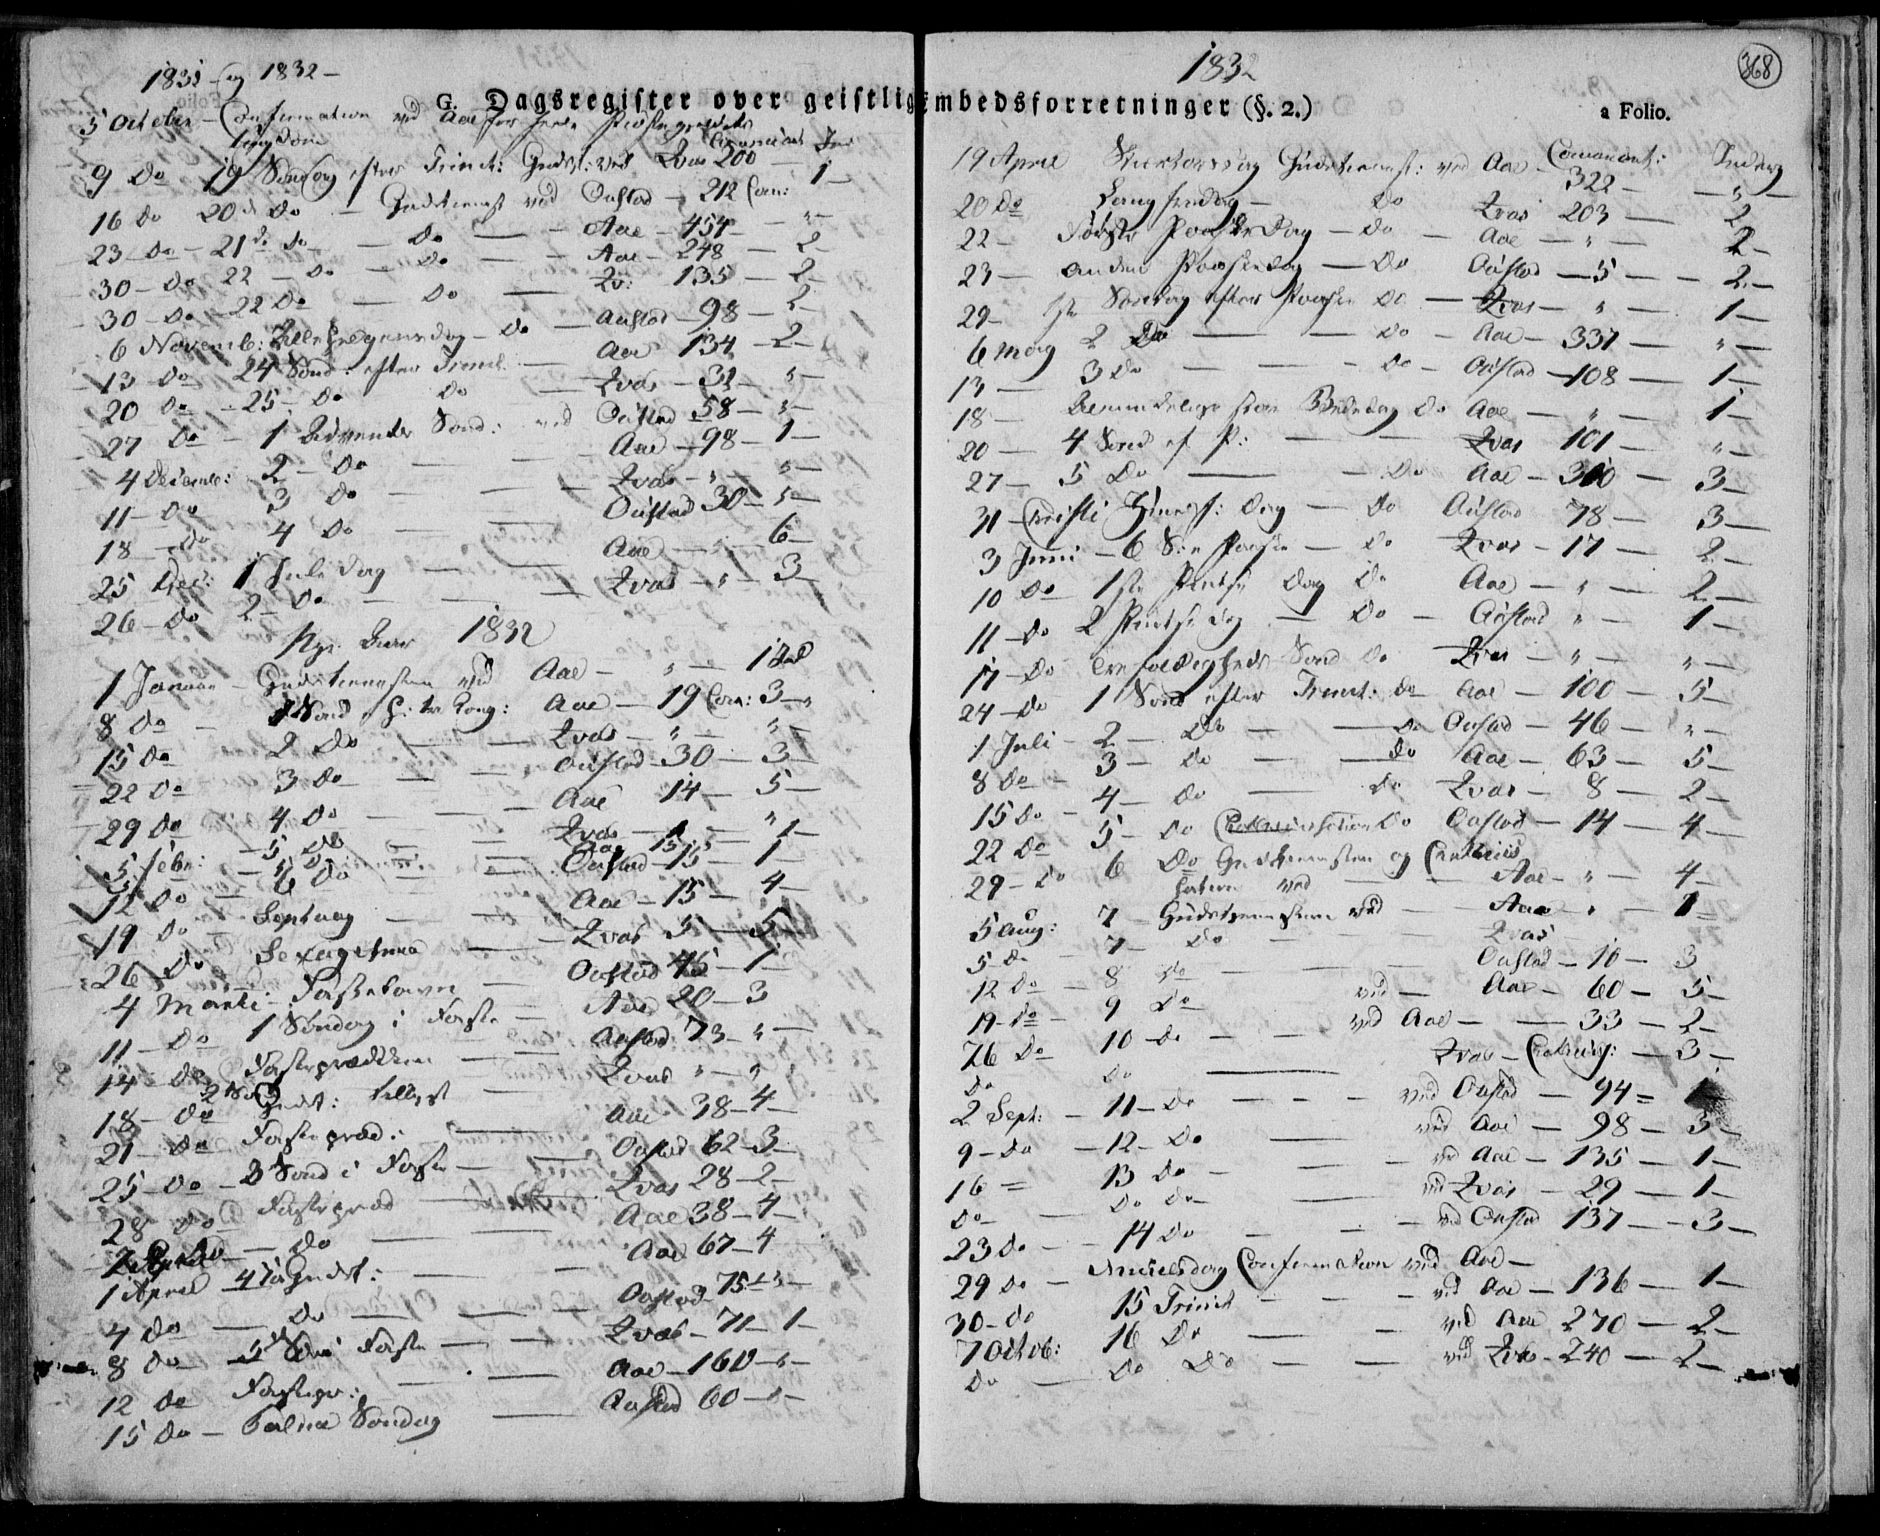 1831 og 1832
G. Dagsregister over geistlig
5 October - Confirmation ved Aae for hele Præstegieldets
Ungdom Comunicant Ind
9 Do 19 Søndag efter Trinit: Gudst: ved Qvas 200 1
16 Do 20 de Do - Gudstienest ved Oustad 212 Com:
23 Do - 21 de Do - Do - Aae 454 - "
30 - Do 22 - Do - Do - Aae - 248 - 2
30 - Do - 22 Do - Do - Qv: 135 - 2
6 Novemb: Allehelgensdag - Do - Oustad - 98 - 2
13 Do 24 Sønd: efter Trinit: - Aae 134 - 2
20 Do - 25 - Do Do - Qvas - 32 - "
27 Do - 1 Advents Sønd: ved Oustad 58 - "
4 Decemb: 2 - Do - Aae - 98 - 1
11 - Do 3 Do - Qvas - " - "
18 - Do 4 Do - Oustad 30 - "
25 Dec: 1 Juledag - Aae - " - 6
26 - Do 2 - Do - Qvas - " - 3
Nye Aar 1832
1 Januar - Gudstienesten ved Aae - " - 1 Ind
8 Do - 1 Sønd e H: tre Kong: Aae - 19 Com: 3
15 Do 2 Do - Qvas - " - "
22 Do 3 Do - Oustad - 30 - 3
29 Do 4 Do - Aae 14 - 5
5 Febr: - 5 Do - Qvas - " 1
12 Do - 6 Do - Oustad - 15 - 1
19 Do - Septuag - Aae - 15 - 4
26 Do Sexagesima - Qvas 5 - 5
4 Marti: Fastelavn - Oustad 45 - 1
11 - Do 1 Søndag i Faste - Aae 20 - 3
14 - Do Fasteprædiken - Oustad 73 - "
18 - Do 2 Sønd Gudst: - Qvas " - "
21 - Do Fastepræd: - Aae 38 - 4
25 - Do - 3 Sønd i Faste - Oustad 62 - 3
28 Do Fastepræd - Qvas 28 - 2
Do - Aae 38 - 4
1 April - 4 Gudst: - Aae 67 - 4
4 Do - Do - Oustad 75 - "
8 Do - 5 Sønd i Faste - Qvas - 71 - 1
12 Do Fastepr: - Aae - 160 - "
15 Do - Palme Søndag - Oustad 60 - "
1832
368
embedsforretninger (§. 2.) a Folio.
19 April Skiertorsdag Gudstienest: ved Aae - Comunicant: 322 - Indledg "
20 Do Langfredag - Do Qvas 203 - 2
22 - Første Paaske Dag - Do - Aae - " - 2
23 - anden Paaskedag - Do Oustad - 5 - 2
29 - 1ste Søndag efter Paaske Do - Qvas - " - 1
6 May 2 Do - Do - Aae - 337 - "
13 - 3 Do - Do - Oustad - 108 - 1
18 - Almindelige store Bededag Do Aae - " - 1
20 - 4 Sønd ef P: - Qvas 101 - "
27 - 5 Do - Do Aae - 300 - 3
31 - Christi Himmelf: Dag - Do Oustad 78 - 3
3 Juni - 6 S: e Paaske - Do - Qvas - 17 - 2
10 Do 1ste Pintse Dag Do Aae - " - 2
11 - Do 2 Pintse Dag - Do - Oustad " - 1
17 - Do Treefoldigheds Sønd Do - Qvas - " - "
24 - Do 1 Sønd efter Trinit: Do Aae - 100 - 5
1 Juli - 2 - Do - Do Oustad - 46 - "
8 Do - 3 - Do - Do Aae - 63 - 5
15 Do - 4 - Do - Do Qvas - 8 - 2
22 Do 5 - Do Do Oustad - 14 - 4
29 - Do 6 Do Gudstienesten og
ved - Aae - " - 4
5 Aug: 7 - Gudstienesten ved - Aae - " - 1
5 Do - 7 - Do - Qvas
12 Do - 8 Do - Oustad - 10 - 3
19 - Do - 9 Do - ved - Aae - 60 - 5
26 Do 10 - Do - ved Aae - 33 - 2
Do Do - Qvas - - 3
2 Sept: - 11 - Do - ved Oustad - 94 - 1
9 - Do - 12 - Do - ved Aae - 98 - 3
16 - 13 Do - ved Aae - 135 - 1
Do - Do Do - ved Qvas - 29 - 1
23 Do - 14 Do - ved Oustad 137 - 3
29 Do - Mikelsdag Confirmation ved Aae -
30 - Do 15 Trinit - ved Aae - 136 - 1
7 Octob: 16 Do - ved Aae 270 - 2
Do - Do Do - ved Qvas - 240 - 2